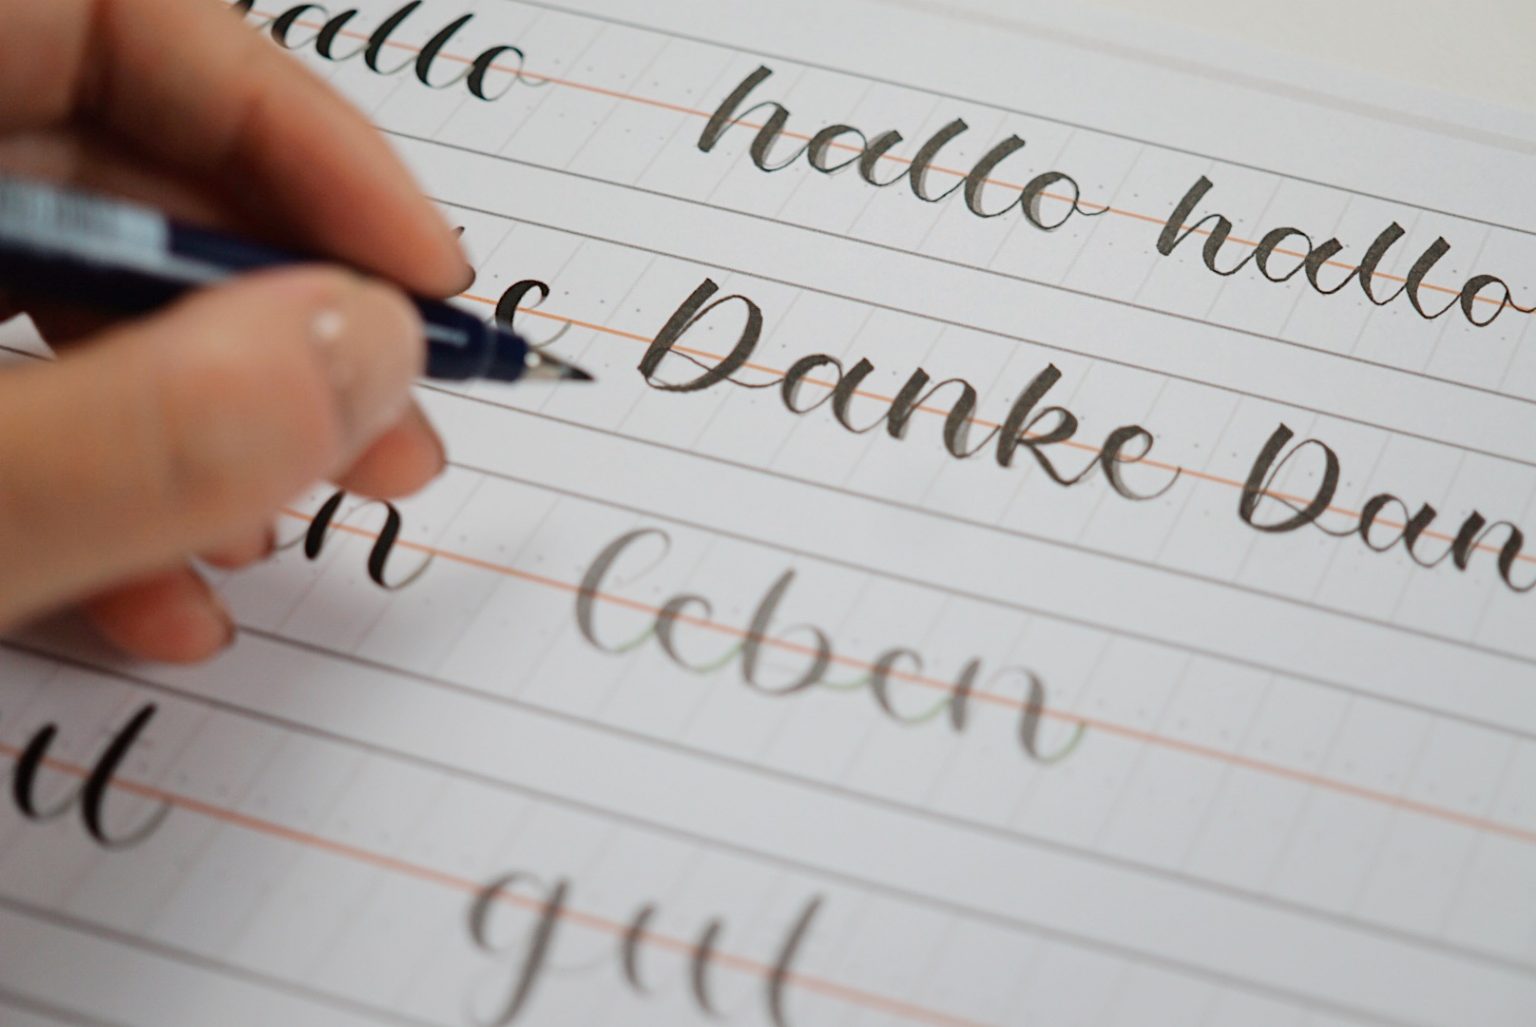 hallo hallo hallo
Danke Dan
leben
gut